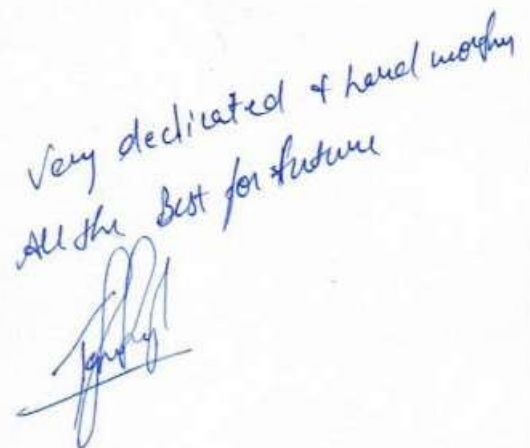 Very dedicated & hard working
All the Best for future